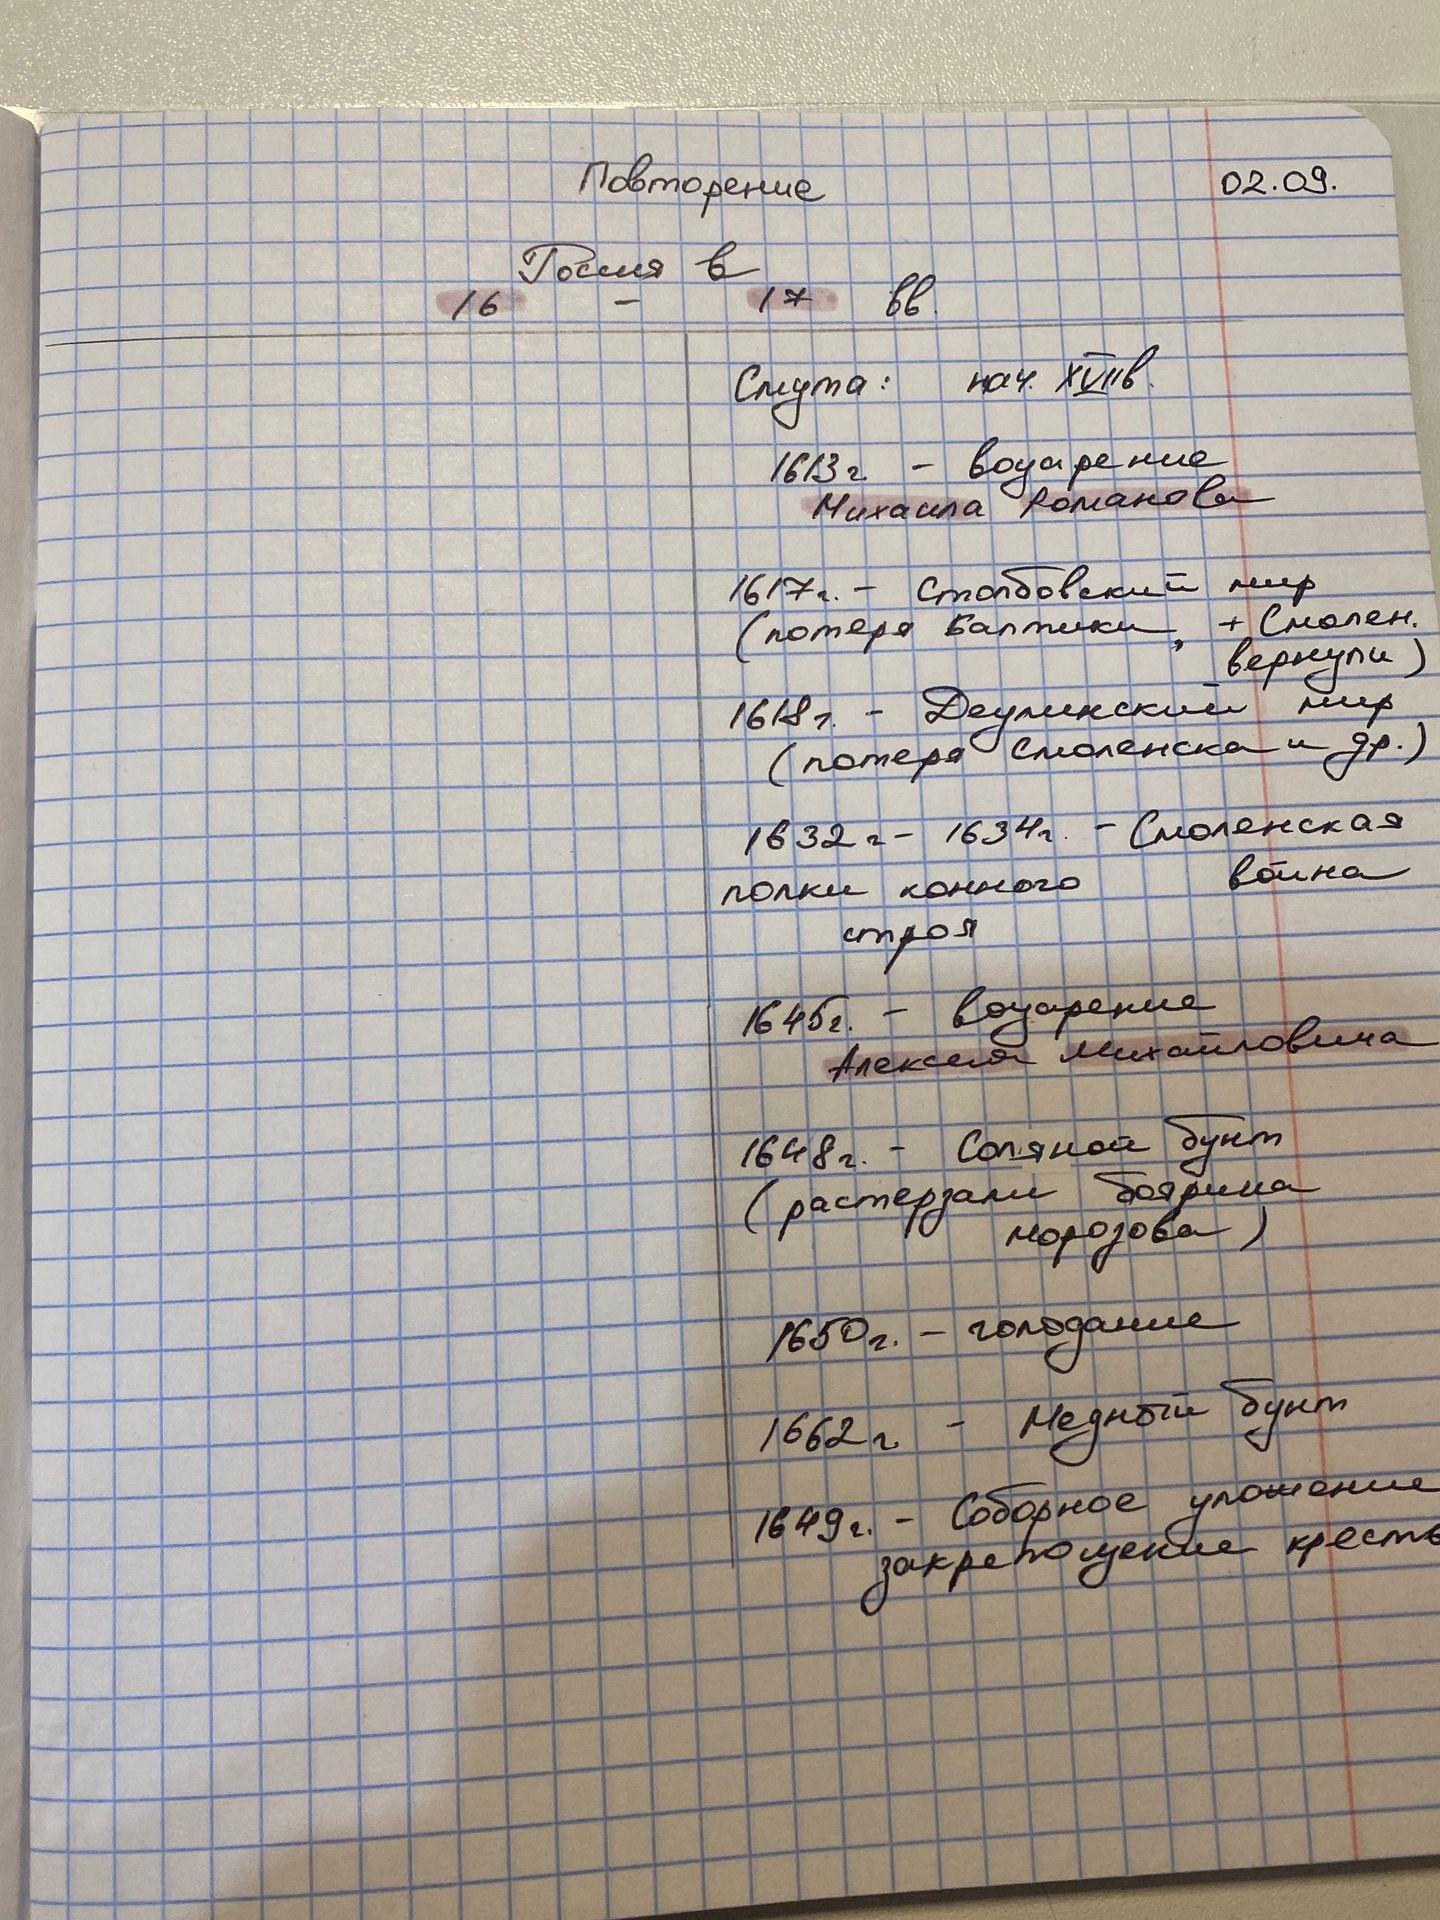 Повторение 02.09.
Россия в
16 - 17 вв.
Смута: нач. XVIIв.
1613г. - воцарение
Михаила Романова
1617г. - Столбовский мир
(потеря Балтики, + Смолен.
вернули)
1618г. - Деулинский мир
(потеря Смоленска и др.)
1632г - 1634г. - Смоленская
полки конного война
строя
1645г. - воцарение
Алексея Михайловича
1648г. - Соляной бунт
(растерзали боярина
Морозова)
1650г. - голодание
1662г. - Медный бунт
1649г. - Соборное уложение
закрепощение кресть